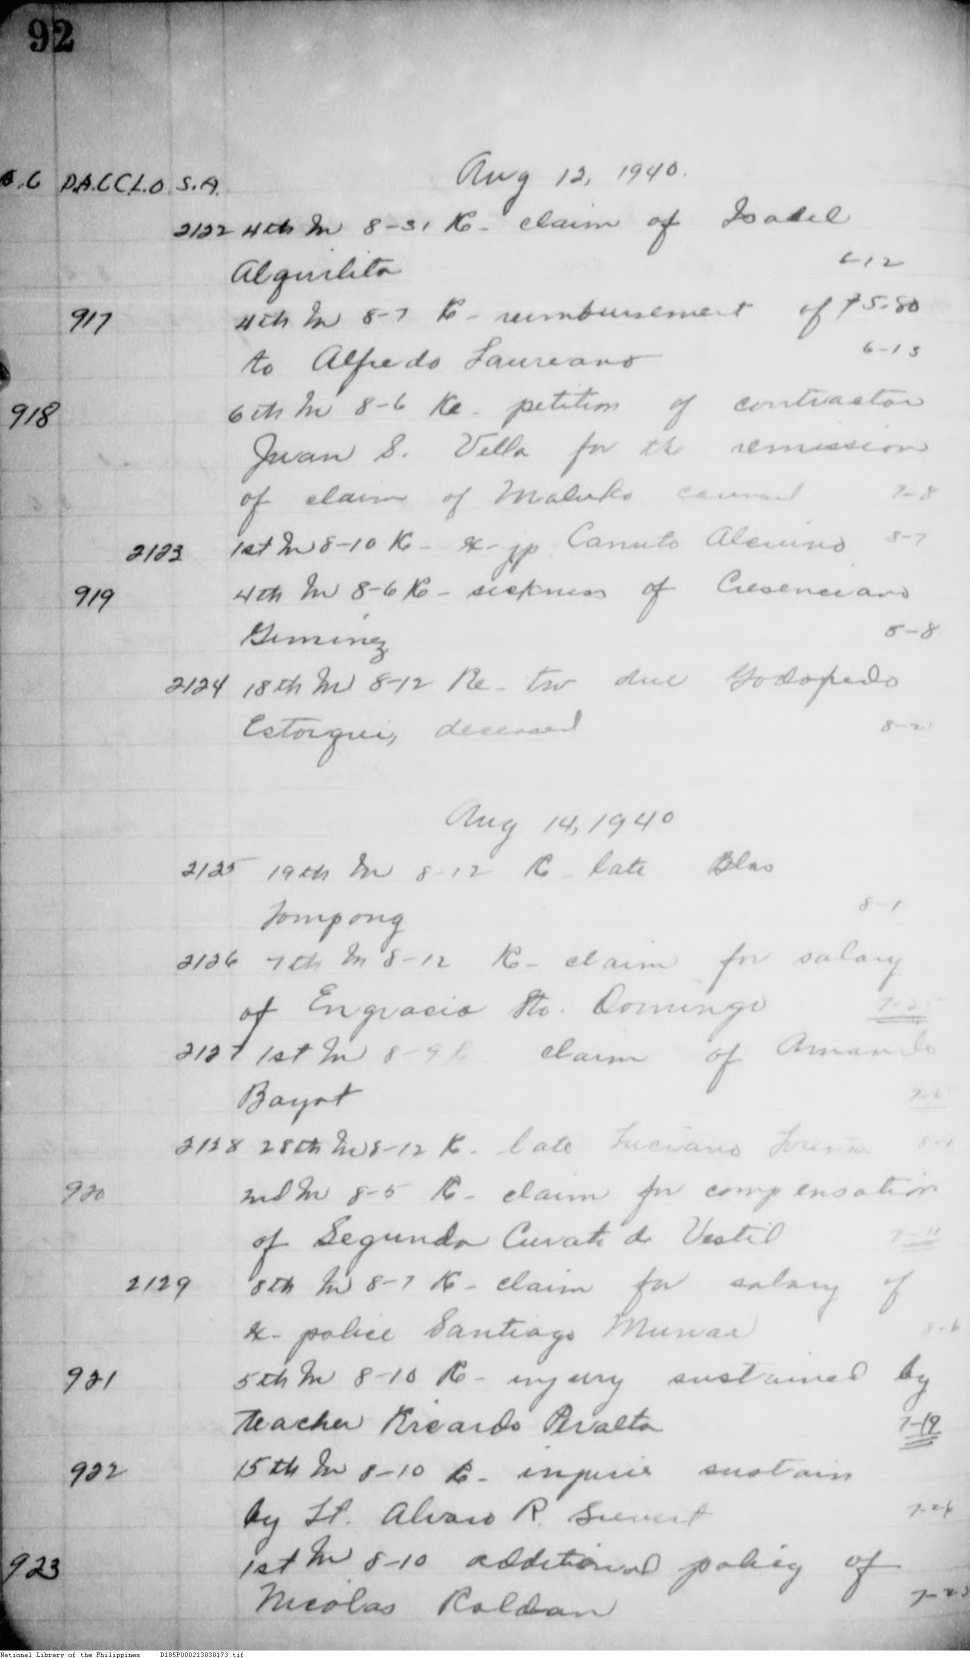 92
Aug 12, 1940.
D.A.C C.L.O S.A.
2122 4th In 8-31 Re- claim of Isabel
Alquilita 6-12
917 4th In 8-7 Re- reimbursement of ₱5.80
to Alfredo Laureano 6-13
918 6th In 8-6 Re- petition of contractor
Juan S. Vella for the remission
of claim of Maluko council 7-8
2123 1st In 8-10 Re- x-jp Canuto 8-7
919 4th In 8-6 Re- sickness of Cresenciano
Giminez 8-8
2124 18th In 8-12 Re- tw due Godofredo
Estorqui, deceased 8-2
Aug 14, 1940
2125 19th In 8-12 Re- late Blas
Tompong 8-1
2126 7th In 8-12 Re- claim for salary
of Engracio Sto. Domingo 7-25
2127 1st In 8-9 claim of Amando
Bayot
2128 28th In 8-12 Re- late Luciano
920 2nd In 8-5 Re- claim for compensation
of Segunda de Vestil 7-11
2129 8th In 8-7 Re- claim for salary of
x-police Santiago Munar 8-6
921 5th In 8-10 Re- injury sustained by
teacher Ricardo Peralta 7-19
922 15th In 8-10 Re- injurie sustain
by Lt. Alvaro R. 7-26
923 1st In 8-10 additional policy of
Nicolas Roldan 7-23
National Library of the Philippines D185P000213030173.tif